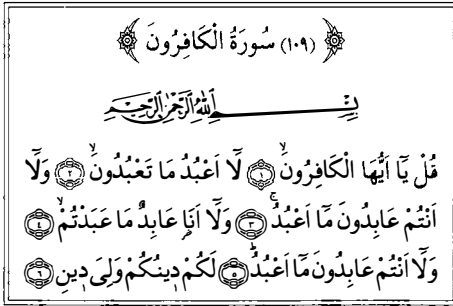 ﴿ (١٠٩) سُورَةُ الْكَافِرُونَ ﴾
بِسْمِ اللّٰهِ الرَّحْمٰنِ الرَّحِيمِ
قُلْ يَٓا اَيُّهَا الْكَافِرُونَۙ ﴿١﴾ لَٓا اَعْبُدُ مَا تَعْبُدُونَۙ ﴿٢﴾ وَلَٓا
اَنْتُمْ عَابِدُونَ مَٓا اَعْبُدُۚ ﴿٣﴾ وَلَٓا اَنَا۬ عَابِدٌ مَا عَبَدْتُمْۙ ﴿٤﴾
وَلَٓا اَنْتُمْ عَابِدُونَ مَٓا اَعْبُدُۜ ﴿٥﴾ لَكُمْ دِينُكُمْ وَلِيَ دِينِ ﴿٦﴾